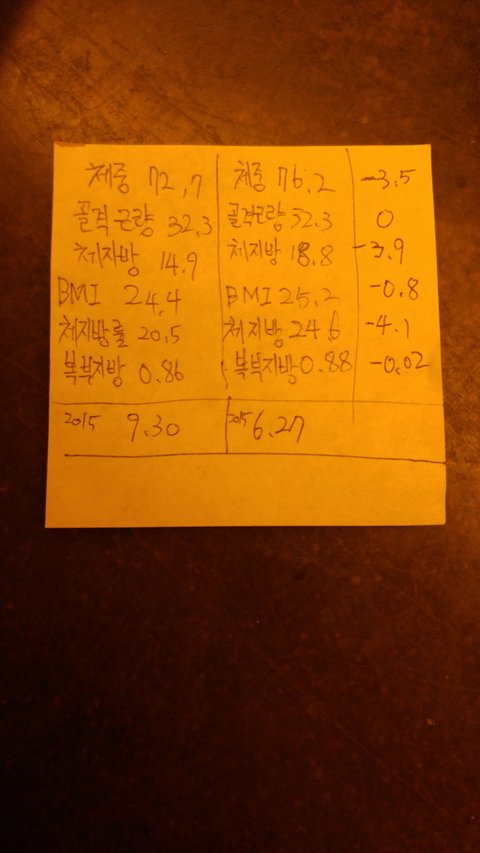 체중 72.7 체중 76.2 -3.5
골격근량 32.3 골격근량 32.3 0
체지방 14.9 체지방 18.8 -3.9
BMI 24.4 BMI 25.2 -0.8
체지방률 20.5 체지방 24.6 -4.1
복부지방 0.86 복부지방 0.88 -0.02
2015 9.30 2015 6.27